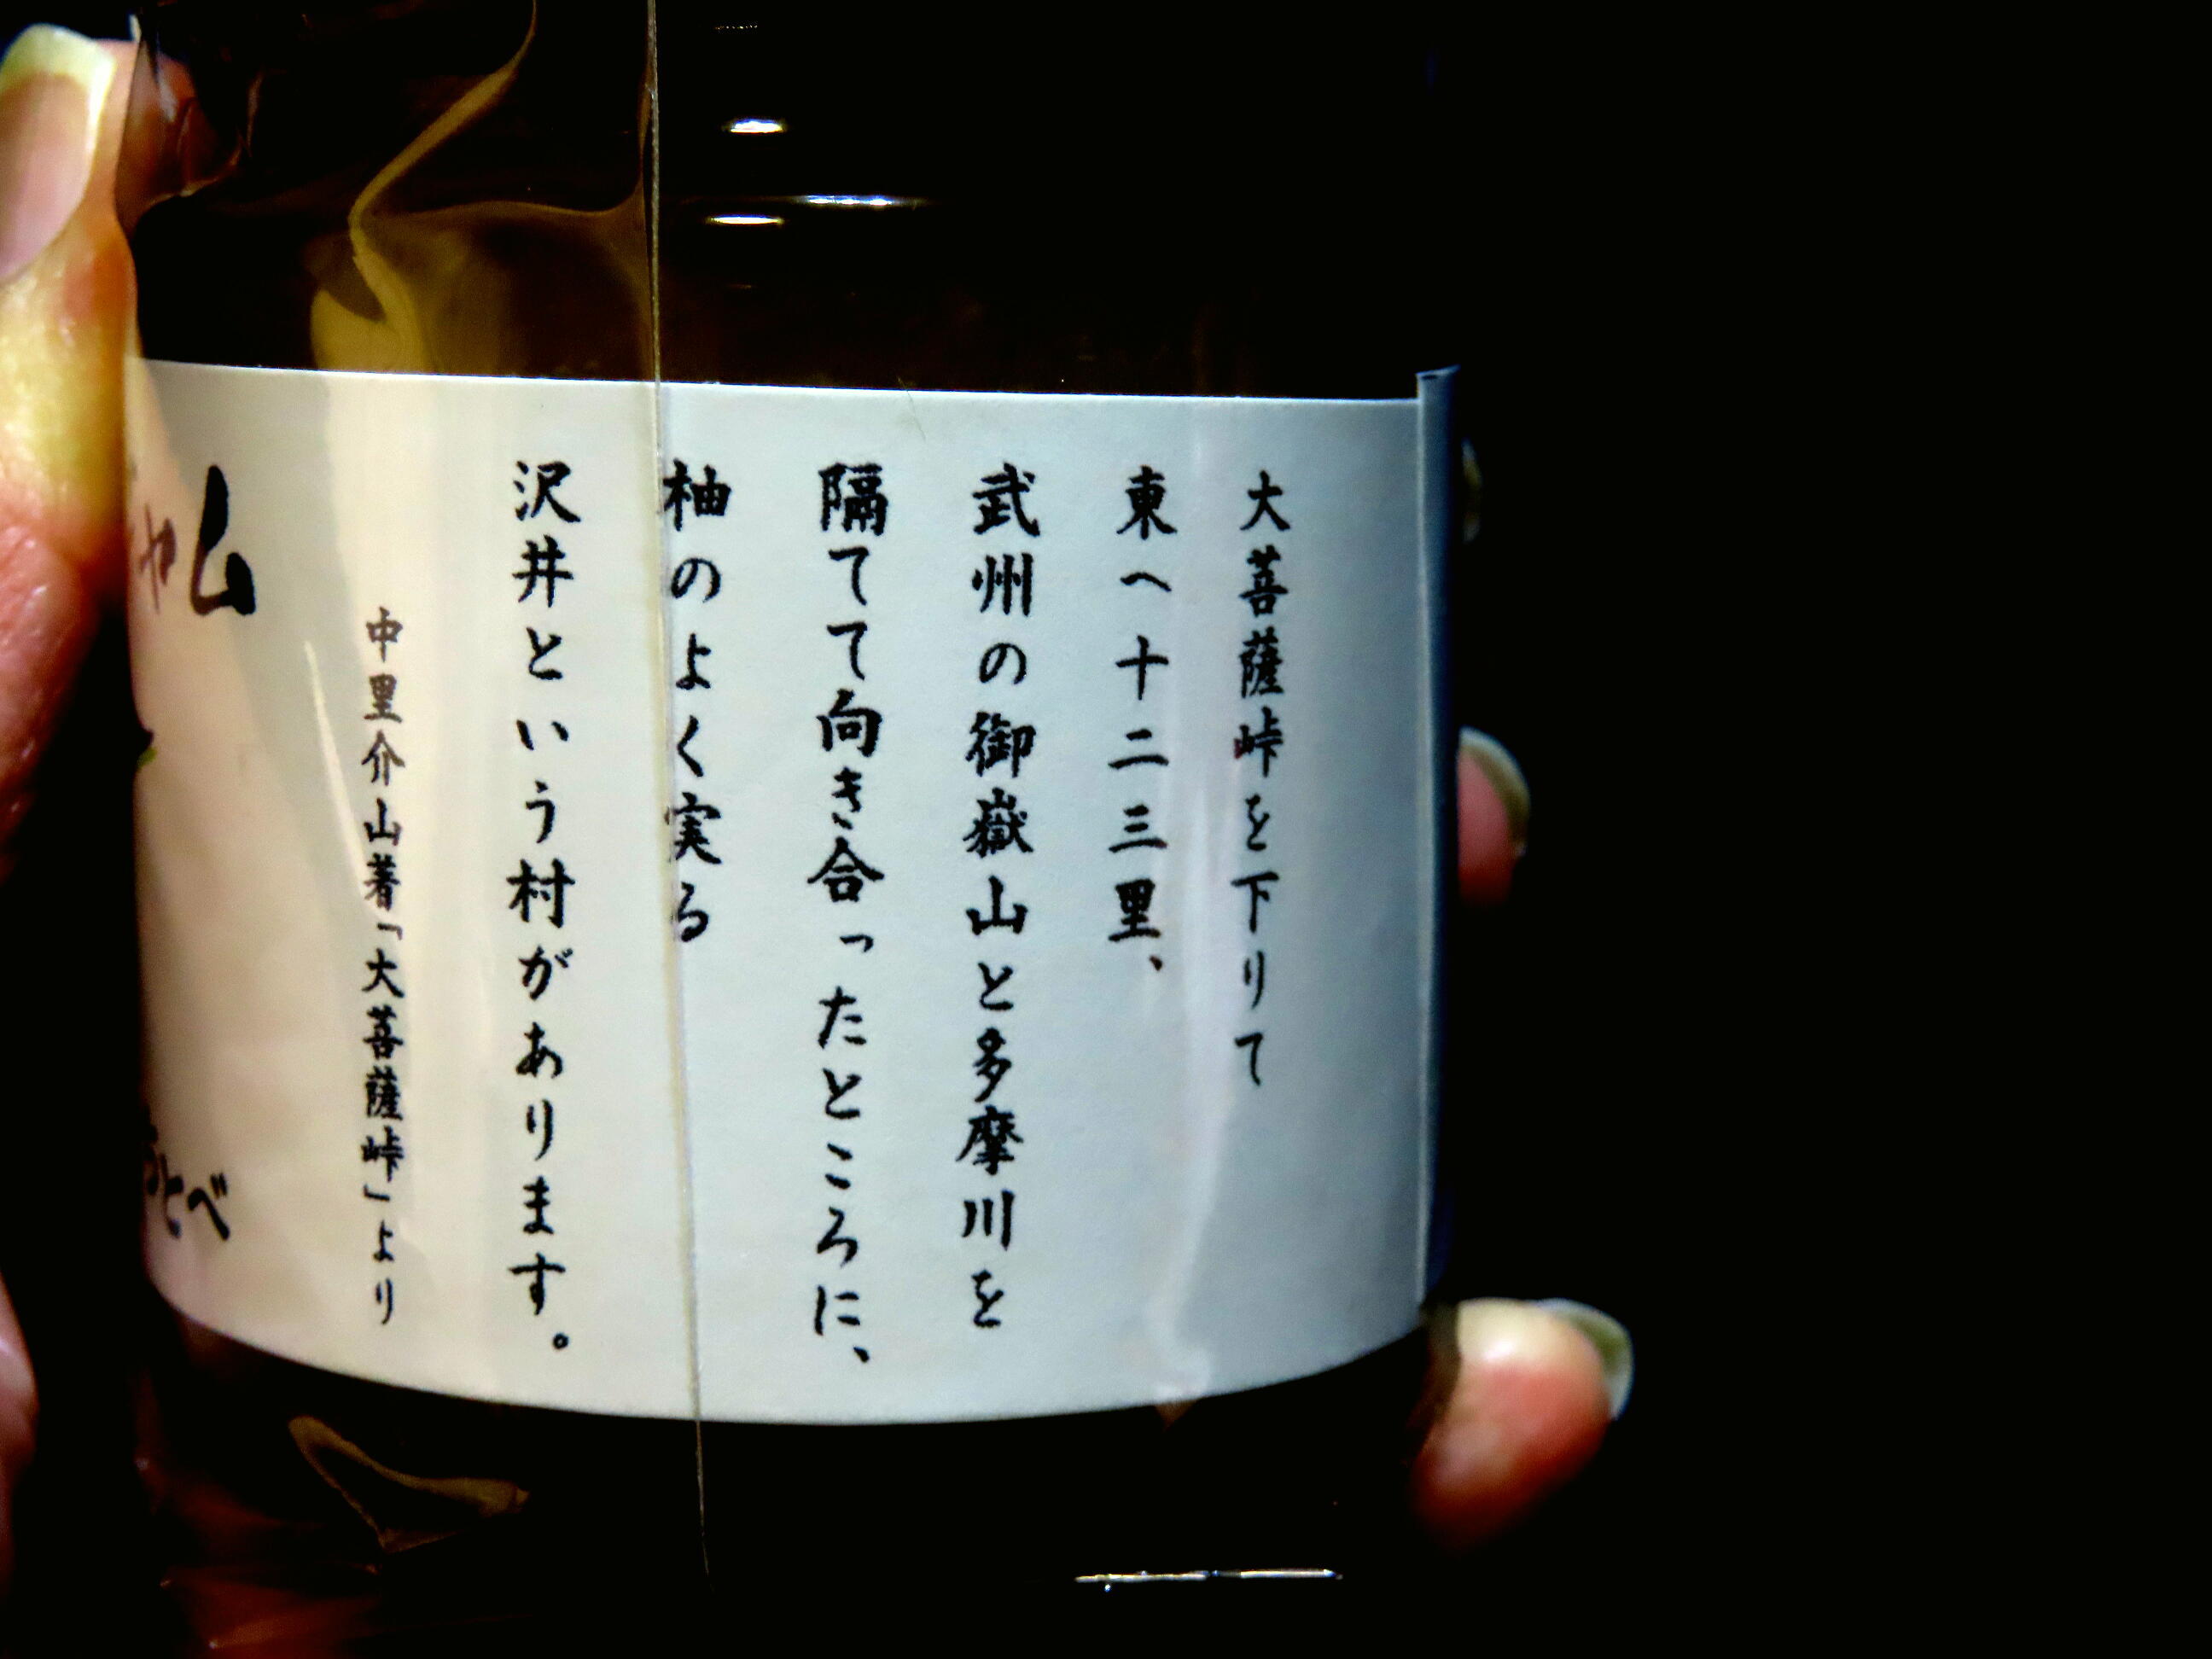 大菩薩峠を下りて
東へ十二三里、
武州の御嶽山と多摩川を
隔てて向き合ったところに、
柚のよく実る
沢井という村があります。
中里介山著「大菩薩峠」より
ャム
とべ